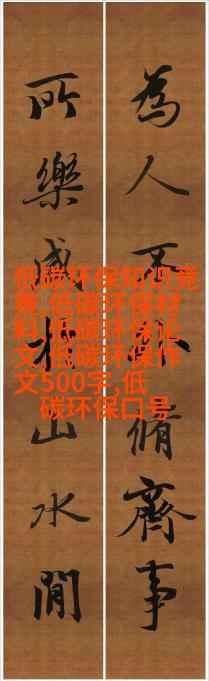 為人不外脩齊事
所樂山水間
低碳环保知识竞
赛,低碳环保材
料,低碳环保论
文,低碳环保作
文500字,低
碳环保口号